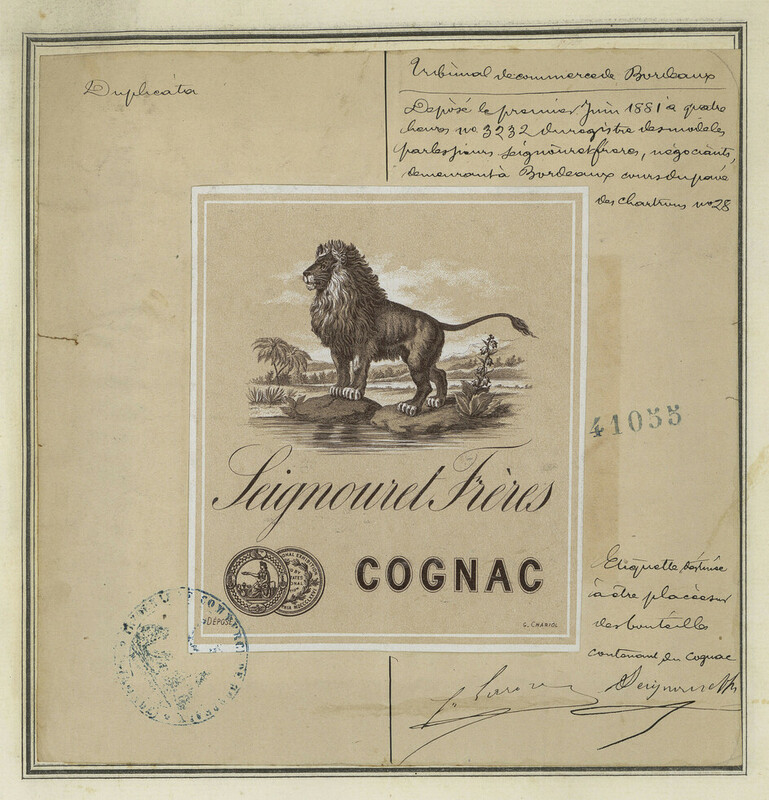 Duplicata
Tribunal de commerce de Bordeaux
Déposé le premier Juin 1881 à quatre
heures no 3232 du registre des modèles
par les sieurs Seignouret frères, négociants,
demeurant à Bordeaux cours du pavé
des Chartrons no 28
Seignouret Frères
COGNAC
DÉPOSÉ
G. CHARIOL
41055
Etiquette destinée
à être placée sur
des bouteilles
contenant du Cognac
Seignouret